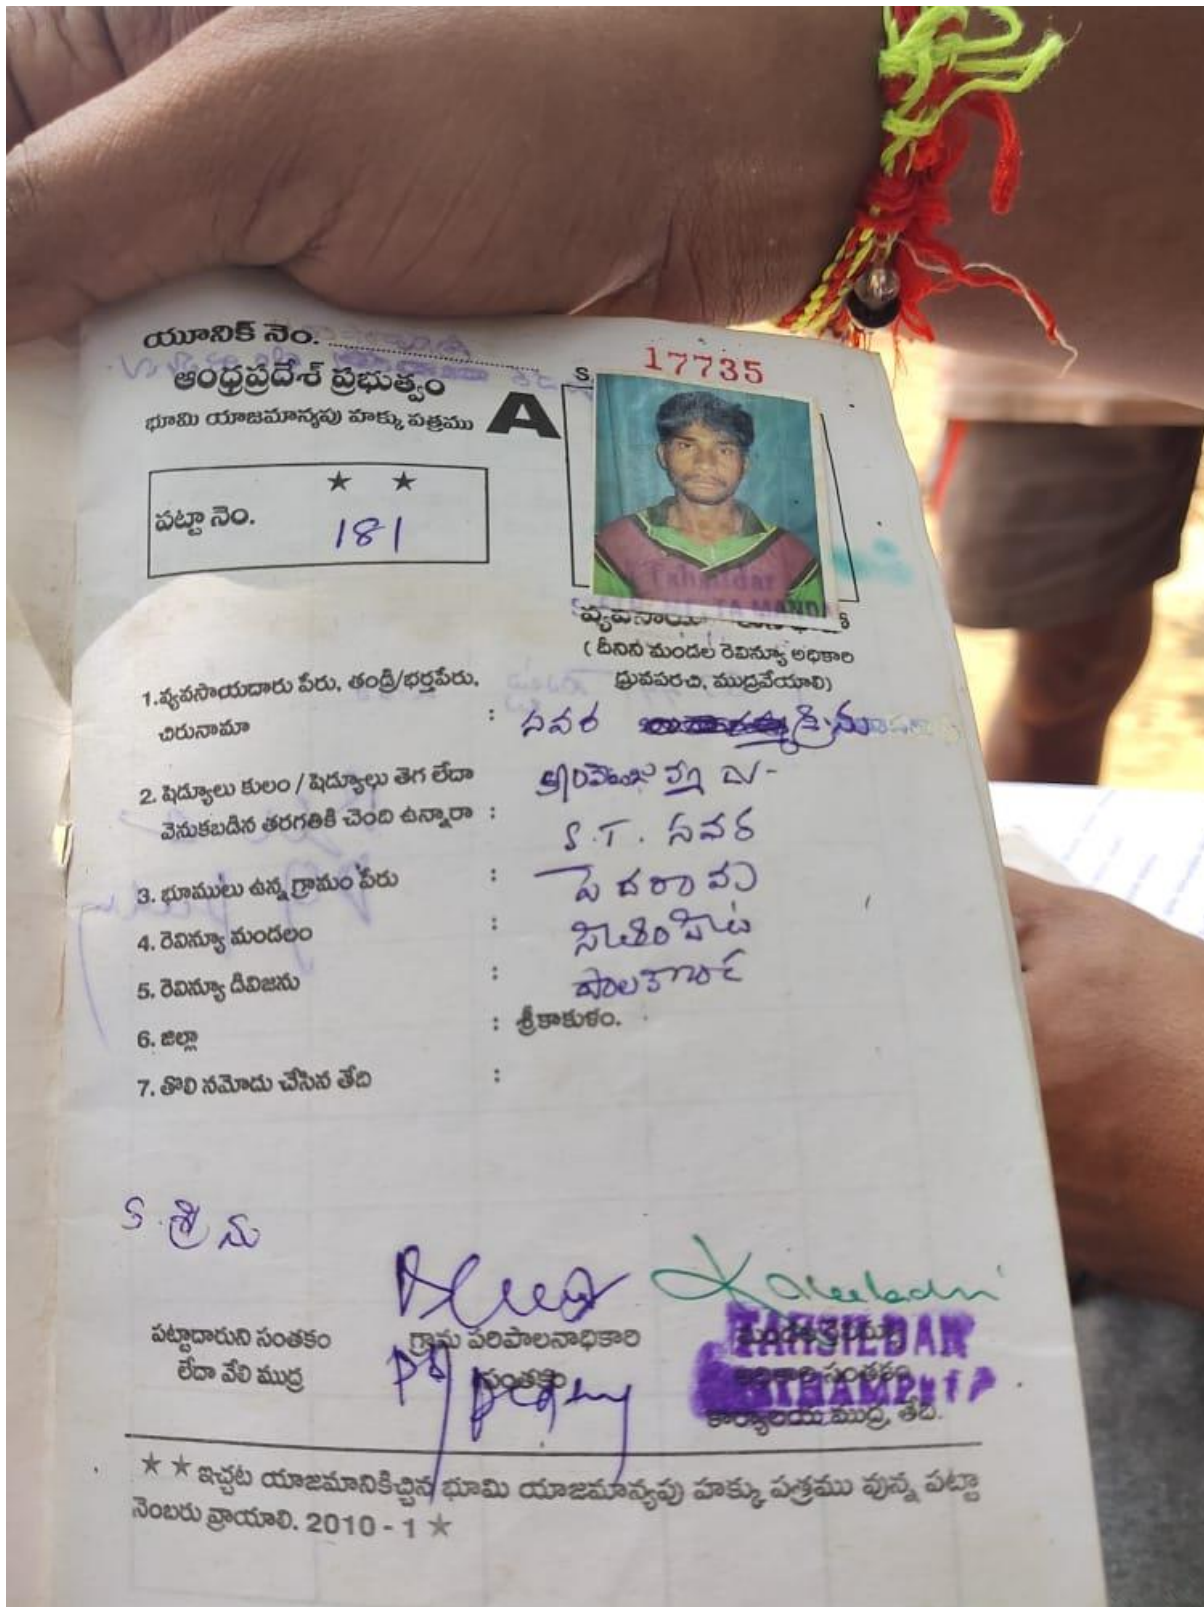 యూనిక్ నెం.
ఆంధ్రప్రదేశ్ ప్రభుత్వం
భూమి యాజమాన్యపు హక్కు పత్రము
A
S.
17735
★ ★
పట్టా నెం. 181
Tahsildar
MANDA
(దీనిని మండల రెవిన్యూ అధికారి
ధ్రువపరచి, ముద్రవేయాలి)
1.వ్యవసాయదారు పేరు, తండ్రి/భర్తపేరు,
చిరునామా : సవర శ్రీను
2. షెడ్యూలు కులం / షెడ్యూలు తెగ లేదా
వెనుకబడిన తరగతికి చెంది ఉన్నారా : S.T. సవర
3. భూములు ఉన్న గ్రామం పేరు : పెదరామ
4. రెవిన్యూ మండలం : సీతంపేట
5. రెవిన్యూ డివిజను : పాలకొండ
6. జిల్లా : శ్రీకాకుళం.
7. తొలి నమోదు చేసిన తేది :
S. శ్రీను
పట్టాదారుని సంతకం
లేదా వేలి ముద్ర
గ్రామ పరిపాలనాధికారి
సంతకం
TAHSILDAR
అధికారి సంతకం
కార్యాలయ ముద్ర, తేది.
★ ★ ఇచ్చట యాజమానికిచ్చిన భూమి యాజమాన్యపు హక్కు పత్రము వున్న పట్టా
నెంబరు వ్రాయాలి. 2010 - 1 ★